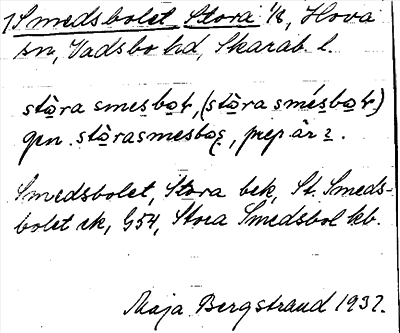 Smedsbolet, Stora 1/8, Hova
sn, Vadsbo hd, Skarab. l.
stòra smesbo̲ɫ, (stòra smésbo̲ɫ)
gen. stòrasmesbo̲s, prep är i.
Smedsbolet, Stora bek, St. Smeds-
bolet ek, G54, Stora Smedsbol kb.
Maja Bergstrand 1932.